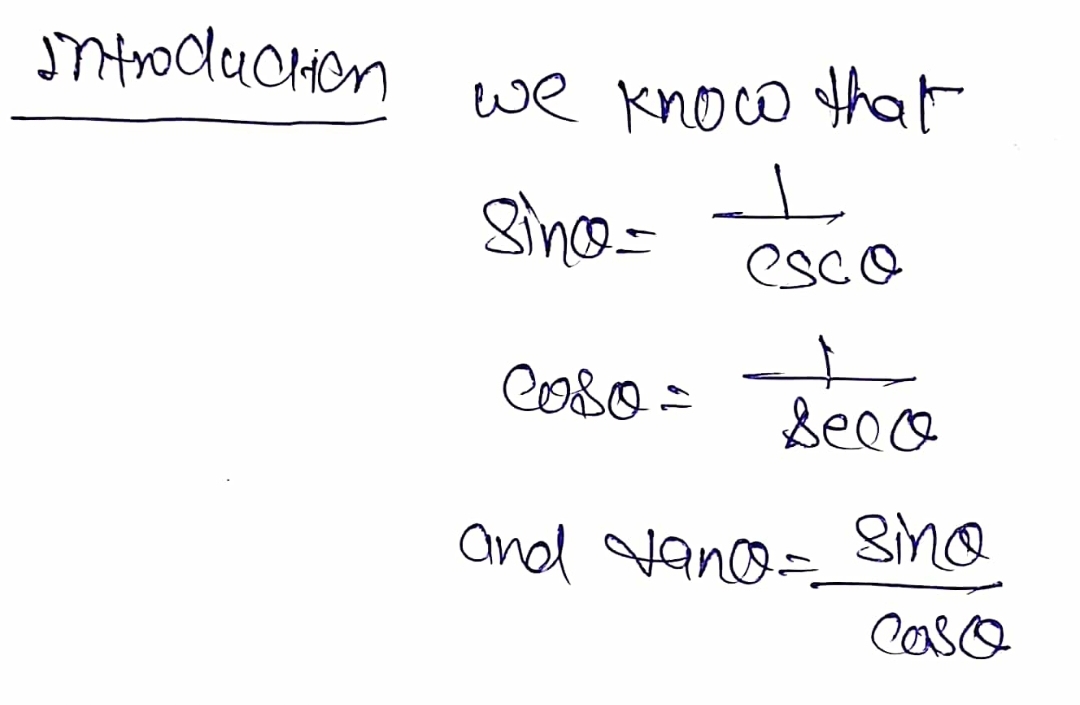 Introduction we know that
sinθ = 1/cscθ
cosθ = 1/secθ
and tanθ = sinθ/cosθ